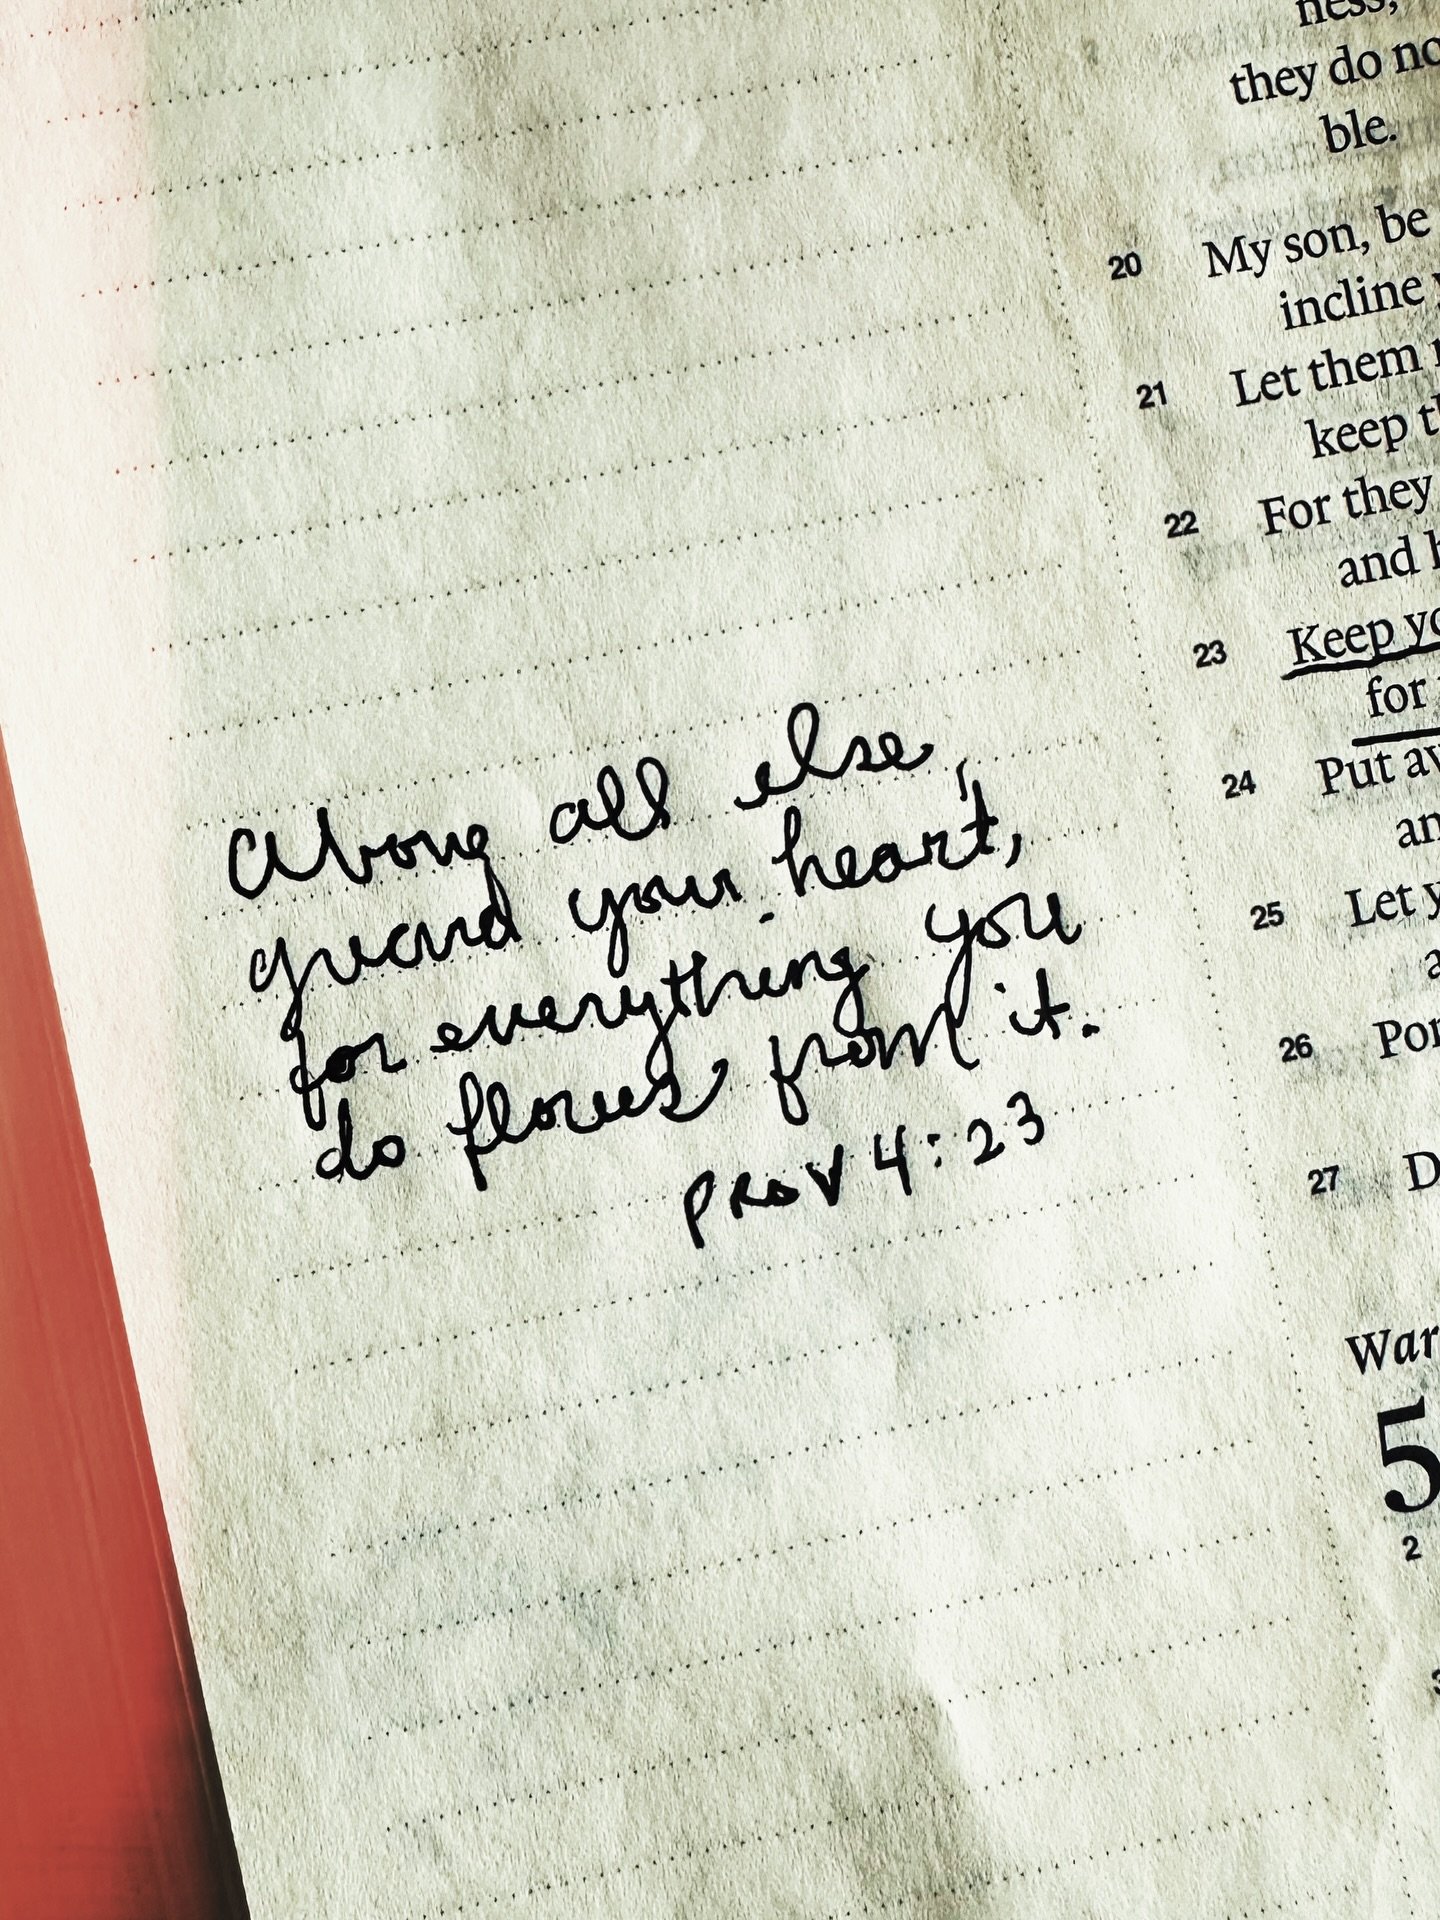 Above all else,
guard your heart,
for everything you
do flows from it.
PROV 4:23
ness,
they do
ble.
20 My son, be
incline
21 Let them
keep
22 For they
and
23 Keep
for
24 Put
25 Let
26
27
5
2